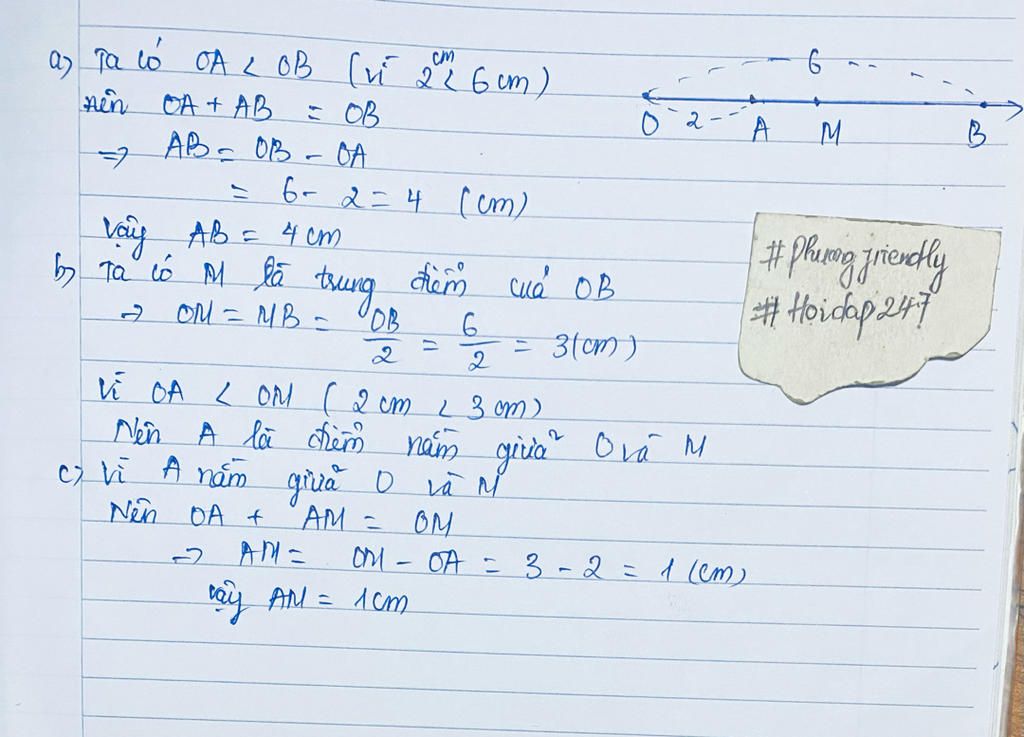 a) Ta có OA < OB (vì 2cm < 6cm)
nên OA + AB = OB
=> AB = OB - OA
= 6 - 2 = 4 (cm)
Vậy AB = 4cm
b) Ta có M là trung điểm của OB
-> OM = MB = OB/2 = 6/2 = 3(cm)
Vì OA < OM (2cm < 3cm)
Nên A là điểm nằm giữa O và M
c) Vì A nằm giữa O và M
Nên OA + AM = OM
=> AM = OM - OA = 3 - 2 = 1 (cm)
Vậy AM = 1cm
6
O 2 A M B
#Phuongfriendly
#Hoidap247